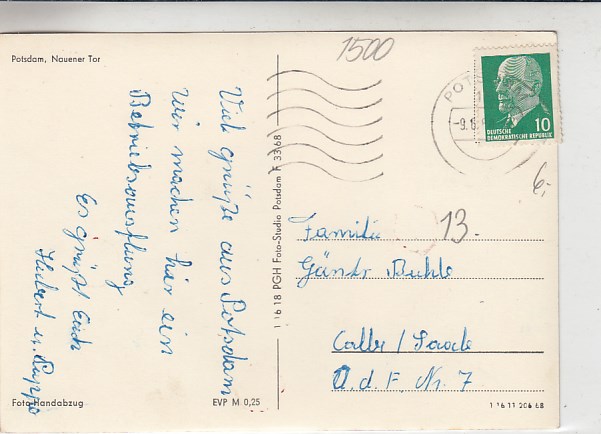 Potsdam, Nauener Tor
Viele grüße aus Potsdam
Wir machen hier ein
Betriebsausflug
Es grüßt Euch
Hubert u. Puppe
Foto-Handabzug
EVP M 0,25
1 16 18 PGH Foto-Studio Potsdam F 33/68
1500
POTSDAM
1
-9.6.
10
DEUTSCHE
DEMOKRATISCHE REPUBLIK
6,-
13.
Familie
Günter
Calbe/Saale
A.d.F. Nr. 7
1 16 11 206 68